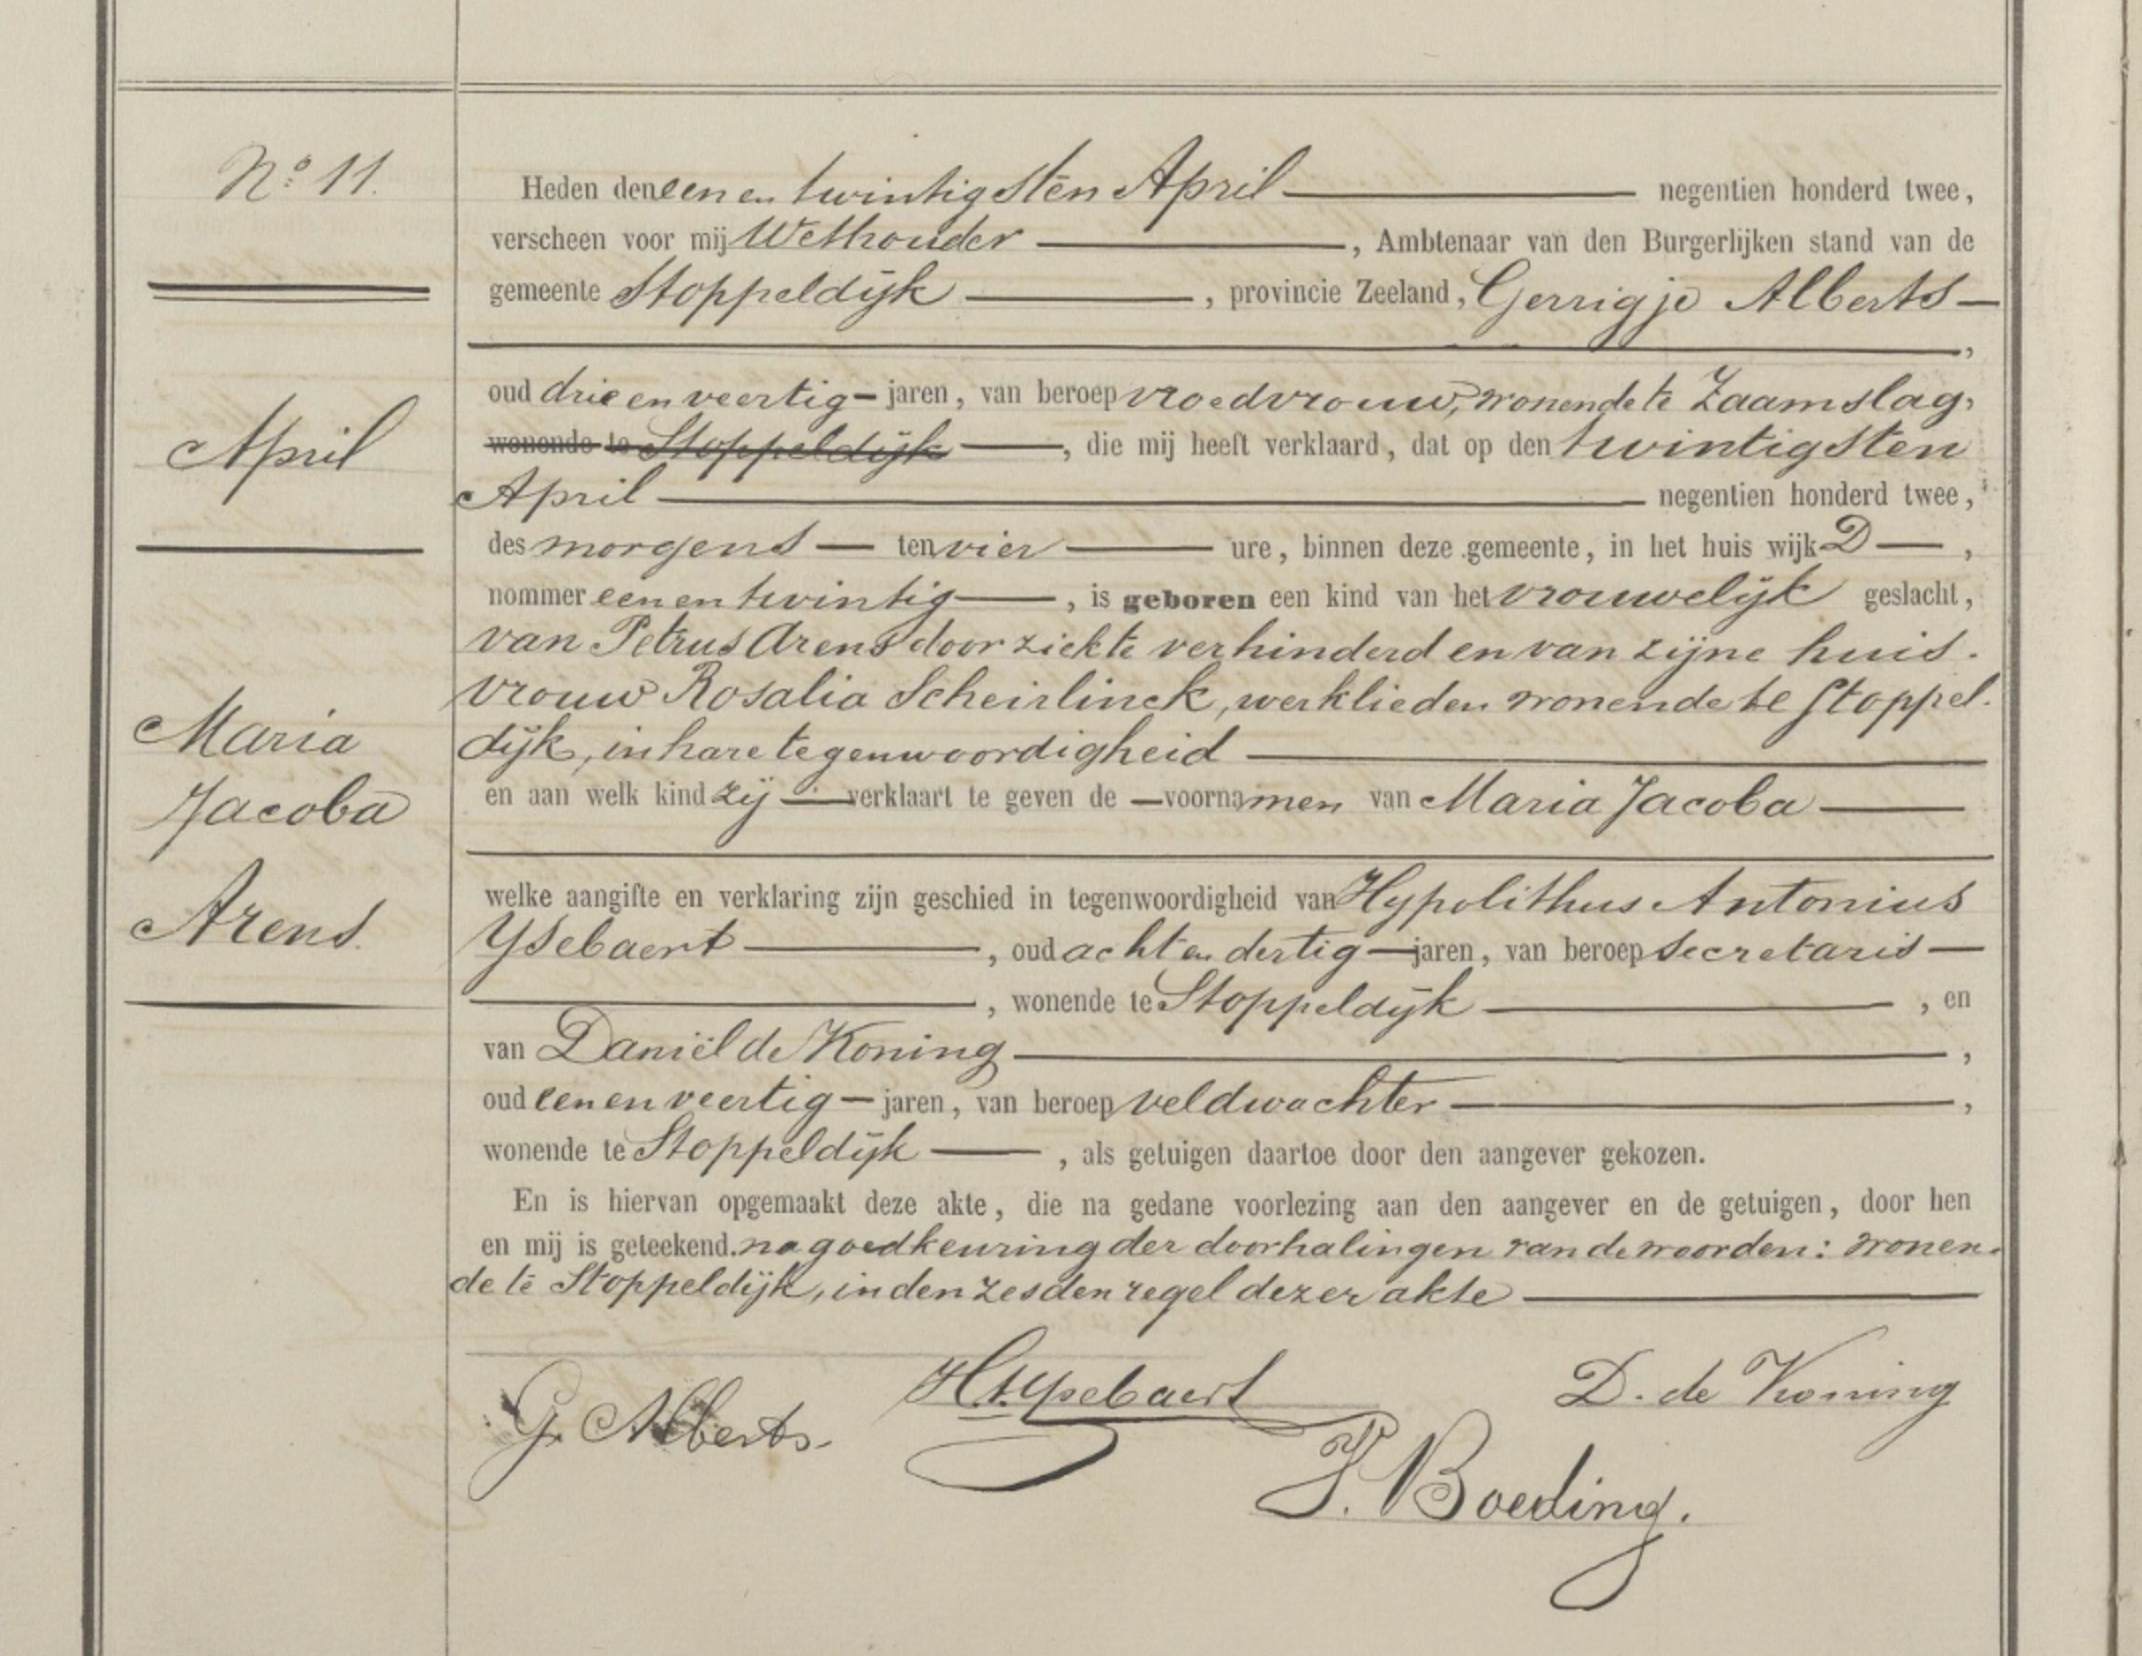 Nº 11.
April
Maria
Jacoba
Arens.
Heden den een en twintigsten April negentien honderd twee,
verscheen voor mij Wethouder, Ambtenaar van den Burgerlijken stand van de
gemeente Stoppeldijk, provincie Zeeland, Gerrigje Alberts
,
oud drie en veertig jaren, van beroep vroedvrouw, wonende te Zaamslag,
wonende te Stoppeldijk, die mij heeft verklaard, dat op den twintigsten
April negentien honderd twee,
des morgens ten vier ure, binnen deze gemeente, in het huis wijk D,
nommer een en twintig, is geboren een kind van het vrouwelijk geslacht,
van Petrus Arens door ziekte verhinderd en van zijne huis-
vrouw Rosalia Scheirlinck, werklieden wonende te Stoppel-
dijk, in hare tegenwoordigheid
en aan welk kind zij verklaart te geven de voornamen van Maria Jacoba
welke aangifte en verklaring zijn geschied in tegenwoordigheid van Hypolithus Antonius
Ysebaert, oud acht en dertig jaren, van beroep secretaris
, wonende te Stoppeldijk, en
van Daniël de Koning,
oud een en veertig jaren, van beroep veldwachter,
wonende te Stoppeldijk, als getuigen daartoe door den aangever gekozen.
En is hiervan opgemaakt deze akte, die na gedane voorlezing aan den aangever en de getuigen, door hen
en mij is geteekend. na goedkeuring der doorhalingen van de woorden: wonen-
de te Stoppeldijk, in den zesden regel dezer akte
Gr Alberts.
H.A. Ysebaert
D. de Koning
J. Boeding.